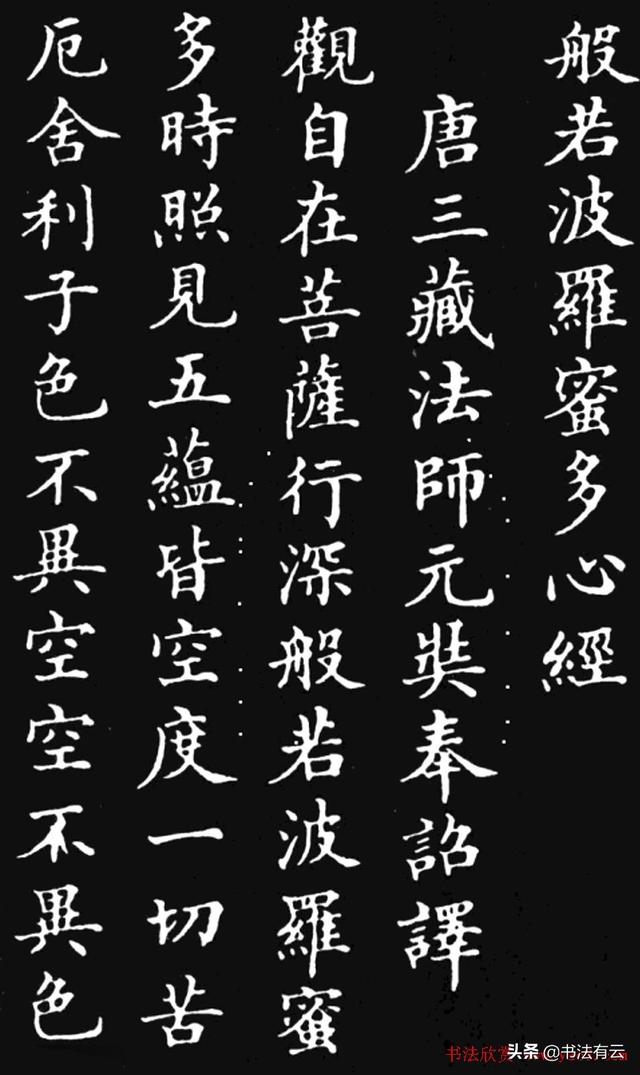 般若波羅蜜多心經
唐三藏法師元奘奉詔譯
觀自在菩薩行深般若波羅蜜
多時照見五蘊皆空度一切苦
厄舍利子色不異空空不異色
书法欣赏
头条 @书法有云